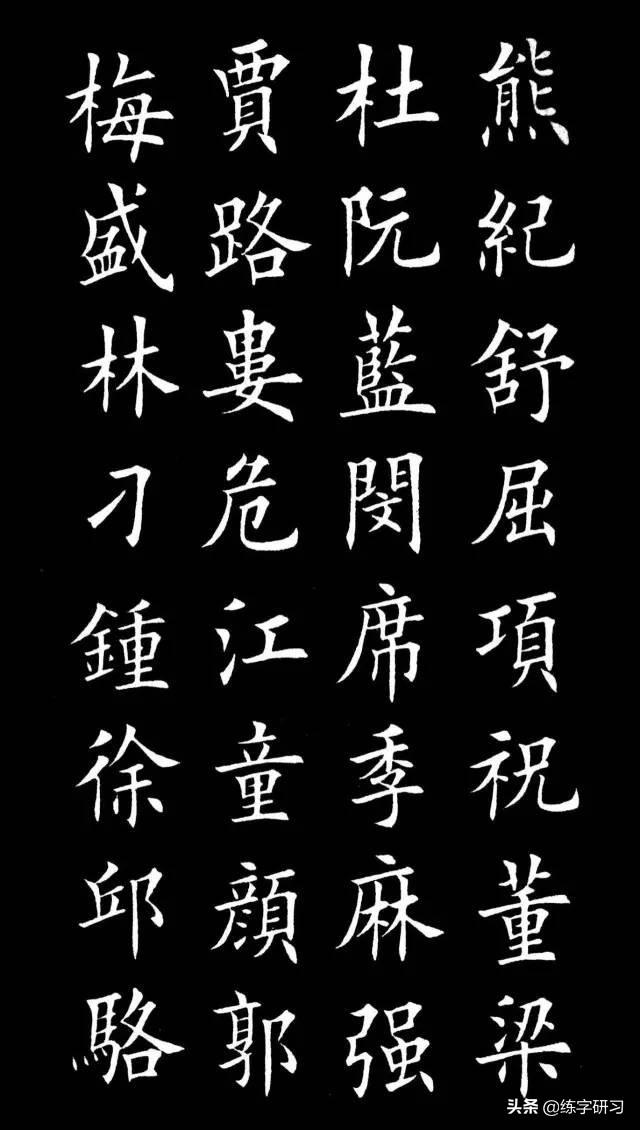 熊紀舒屈項祝董梁
杜阮藍閔席季麻强
賈路婁危江童顔郭
梅盛林刁鍾徐邱駱
头条 @练字研习